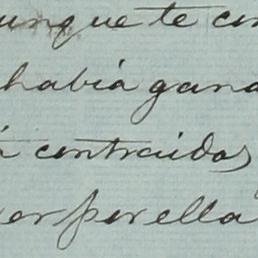 unque te con
había gana
a contraidas
or por ella